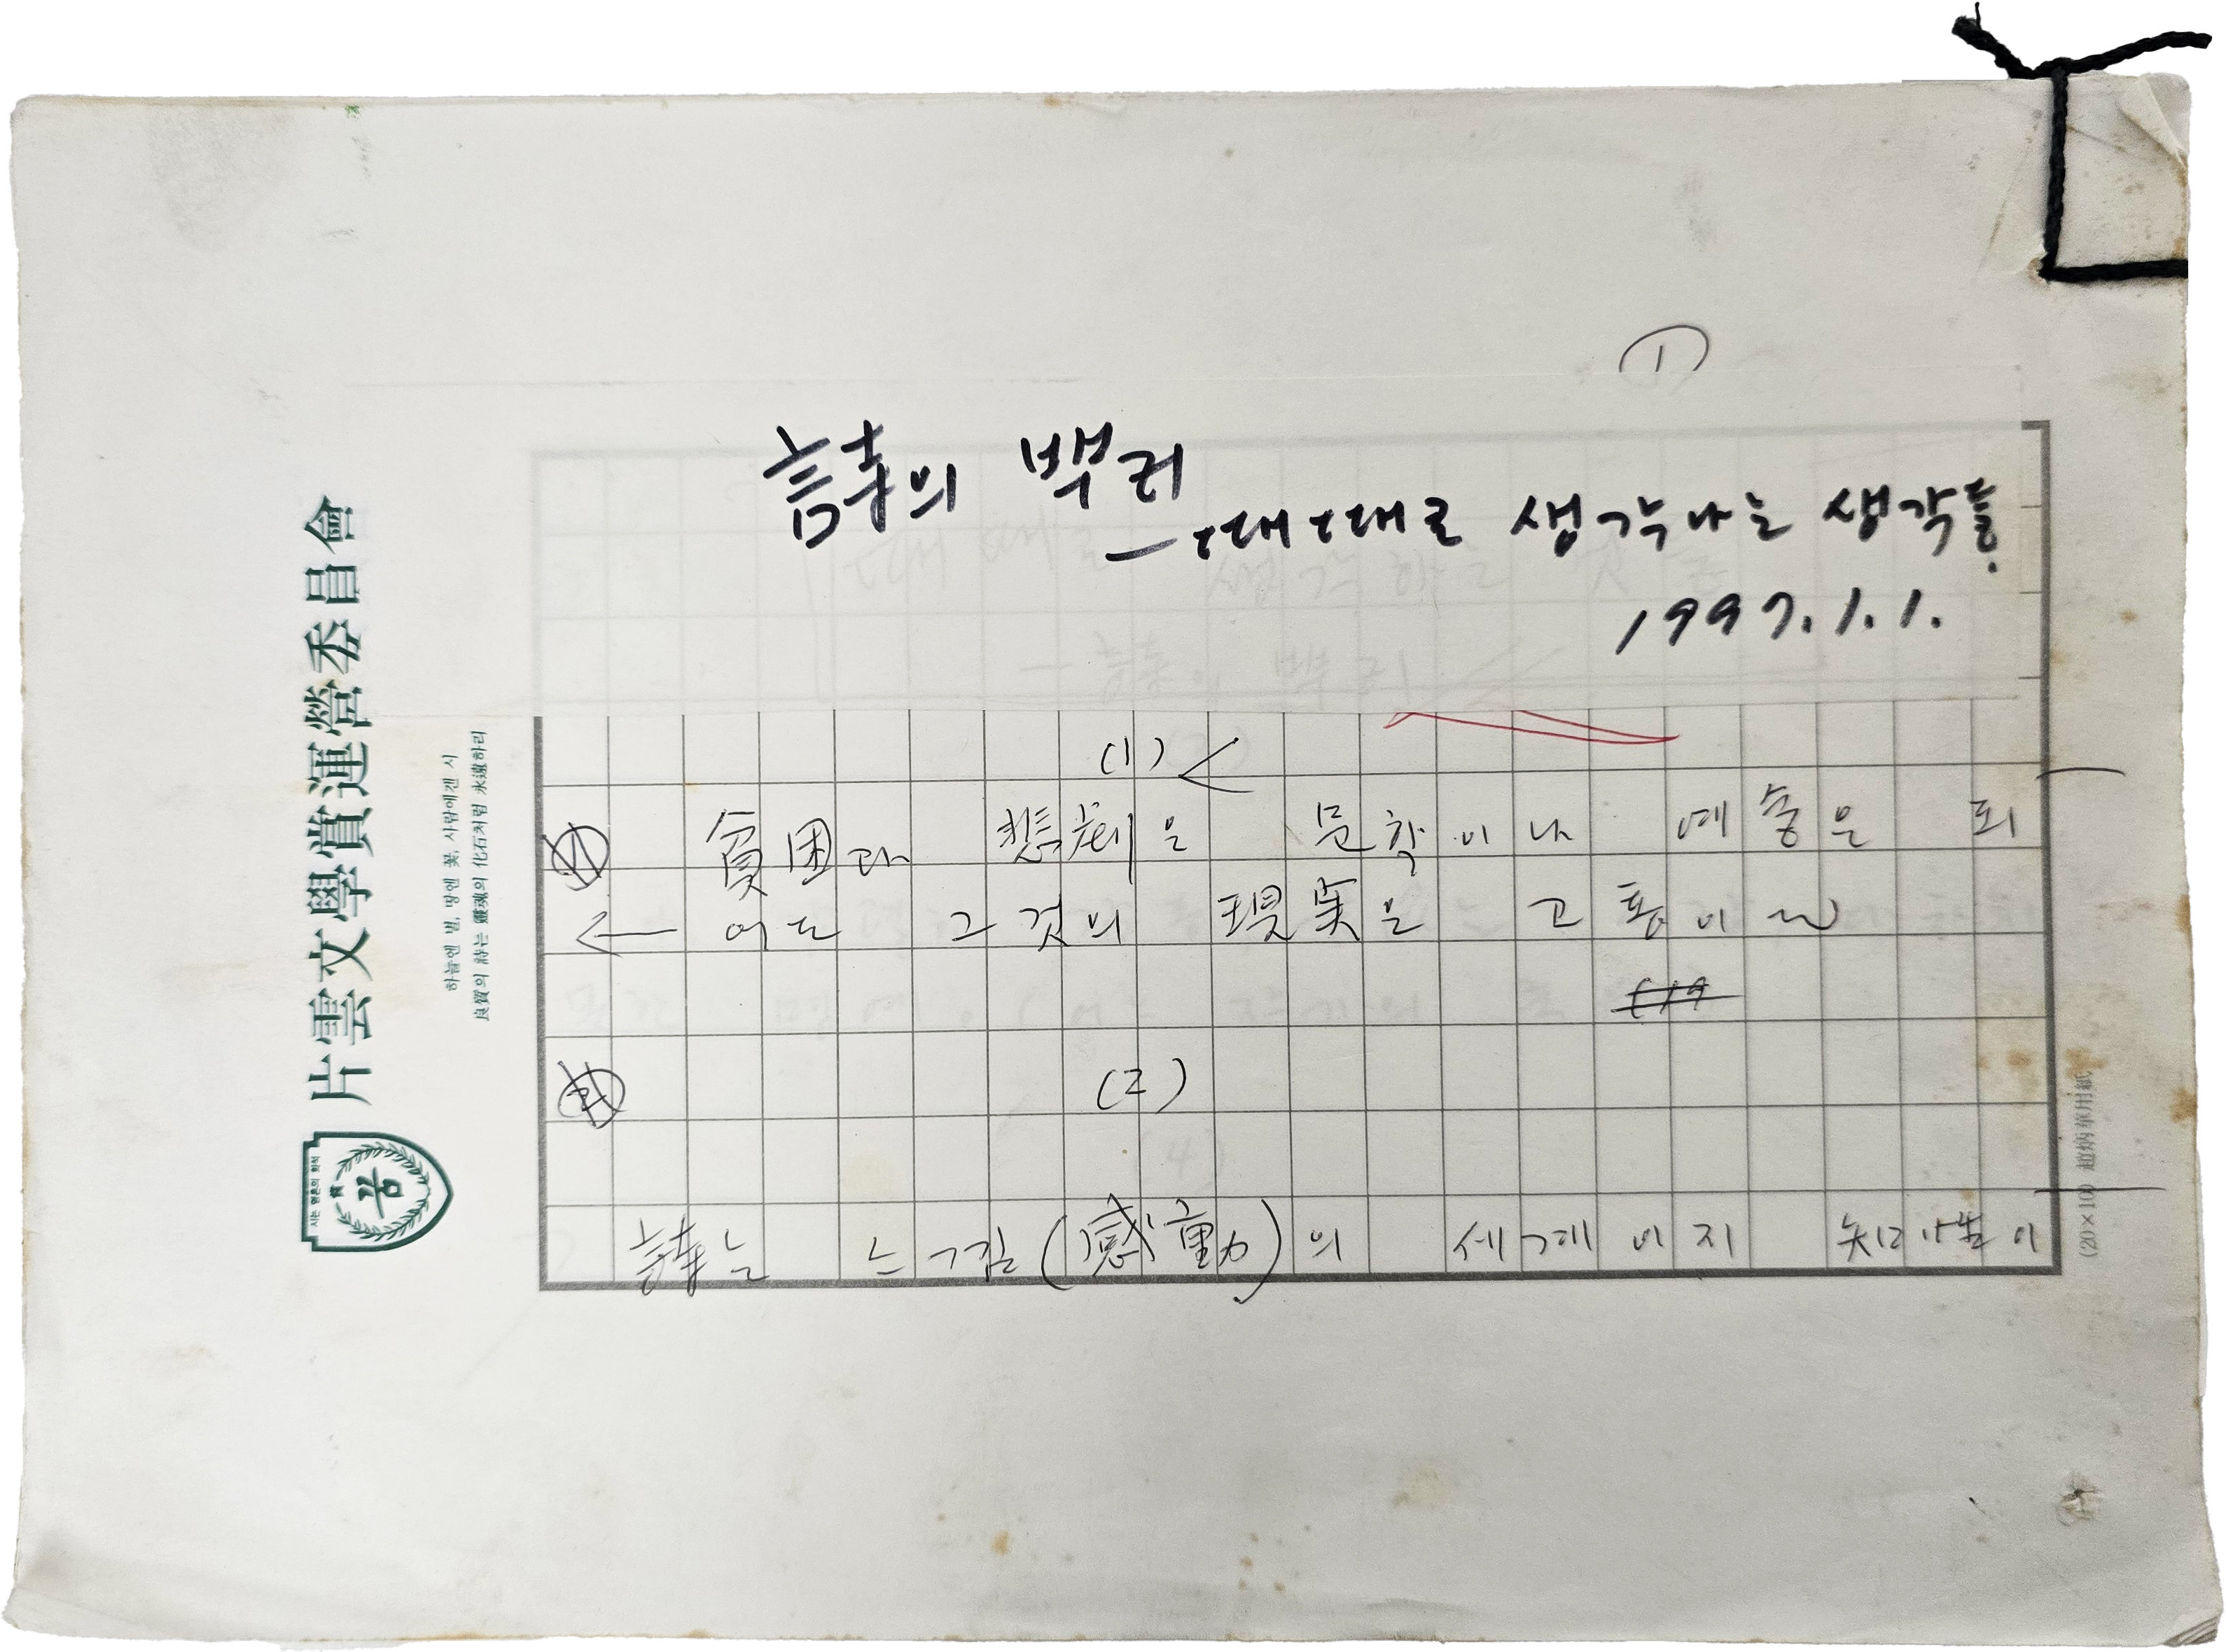 ①
詩의 뿌리
—때때로 생각나는 생각들.
1997.1.1.
(1)
貧困과 悲劇은 문학이나 예술은 되
어도 그것의 現実은 고통이다
(2)
詩는 느낌(感動)의 세계이지 知性이
片雲文學賞運營委員會
하늘엔 별, 땅엔 꽃, 사람에겐 시
良質의 詩는 靈魂의 化石처럼 永遠하리
시는 영혼의 화석
꿈
(20×10) 趙炳華用紙